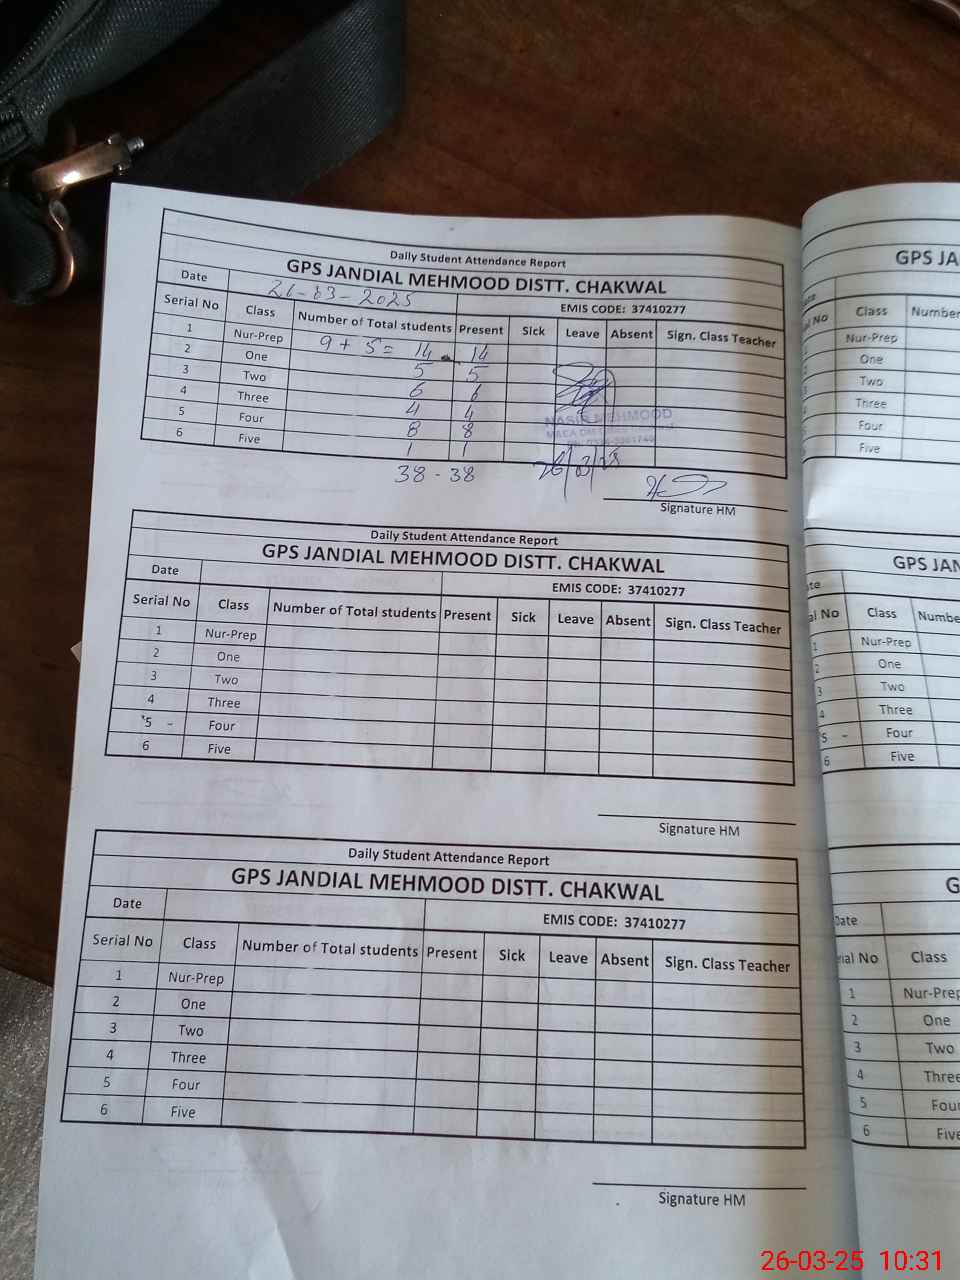 Daily Student Attendance Report
GPS JANDIAL MEHMOOD DISTT. CHAKWAL
Date 26-03-2025 EMIS CODE: 37410277
Serial No Class Number of Total students Present Sick Leave Absent Sign. Class Teacher
1 Nur-Prep 9 + 5 = 14 14
2 One 5 5
3 Two 6 6
4 Three 4 4
5 Four 8 8
6 Five 1 1
NASIR MEHMOOD
38 - 38 26/03/25
Signature HM
Daily Student Attendance Report
GPS JANDIAL MEHMOOD DISTT. CHAKWAL
Date EMIS CODE: 37410277
Serial No Class Number of Total students Present Sick Leave Absent Sign. Class Teacher
1 Nur-Prep
2 One
3 Two
4 Three
5 - Four
6 Five
Signature HM
Daily Student Attendance Report
GPS JANDIAL MEHMOOD DISTT. CHAKWAL
Date EMIS CODE: 37410277
Serial No Class Number of Total students Present Sick Leave Absent Sign. Class Teacher
1 Nur-Prep
2 One
3 Two
4 Three
5 Four
6 Five
Signature HM
GPS JA
ate
al No Class Number
Nur-Prep
One
Two
Three
Four
Five
GPS JAN
te
al No Class Numbe
1 Nur-Prep
2 One
3 Two
4 Three
5 - Four
6 Five
G
Date
rial No Class
1 Nur-Prep
2 One
3 Two
4 Three
5 Fou
6 Five
26-03-25 10:31